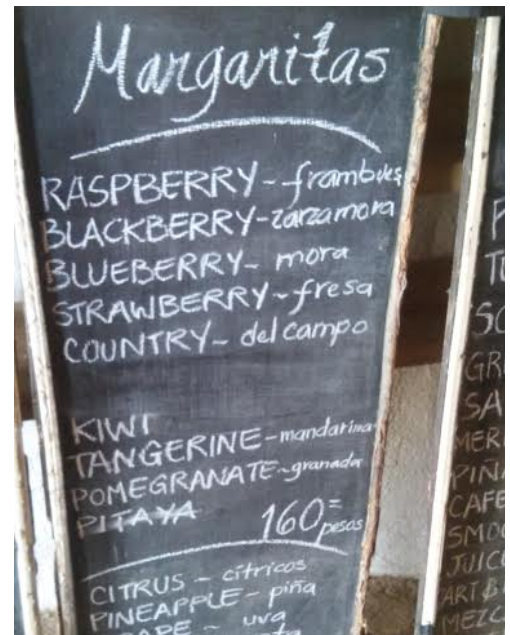 Margaritas
RASPBERRY - frambues
BLACKBERRY - zarzamora
BLUEBERRY - mora
STRAWBERRY - fresa
COUNTRY - del campo
KIWI
TANGERINE - mandarina
POMEGRANATE - granada
PITAYA
160= pesos
CITRUS - cítricos
PINEAPPLE - piña
uva
SA
MER
PIÑA
CAFE
SMOO
JUIC
MEZC